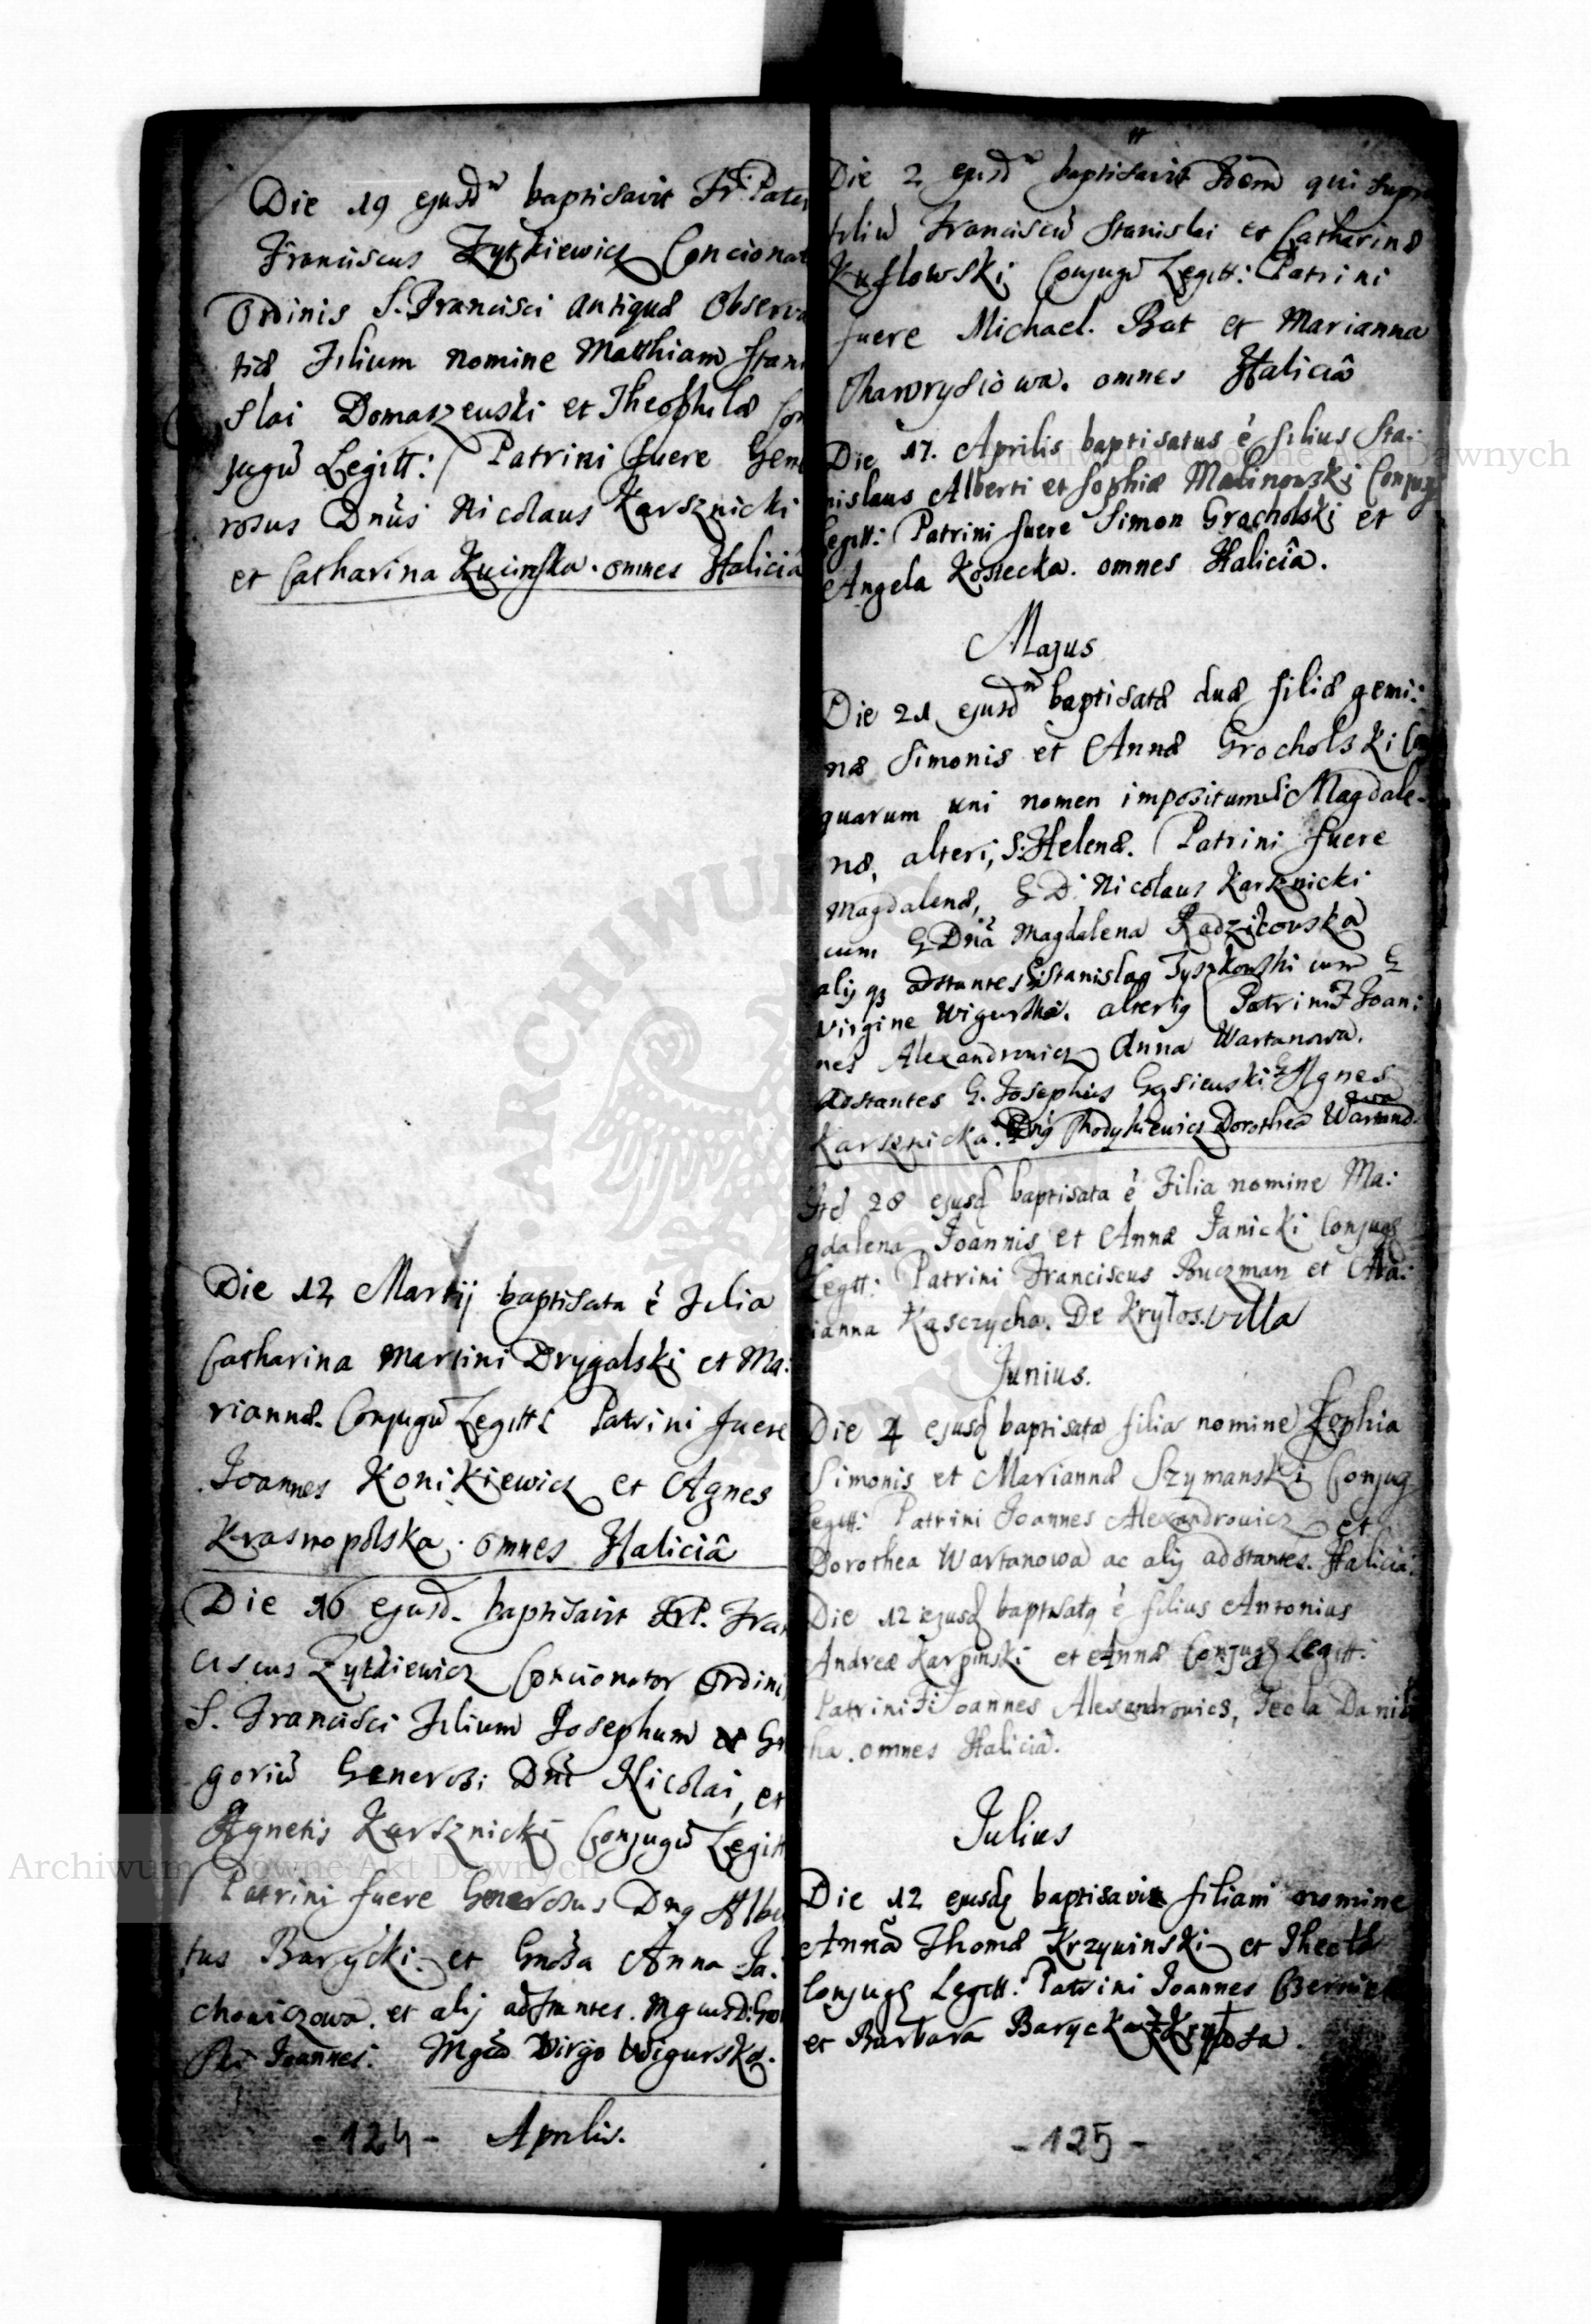 Die 19 ejusd baptisavit Fr. Pater
Franciscus Zytkiewicz Concionat
Ordinis S. Francisci antiquæ Observa
tiæ Filium nomine Matthiam Stani
slai Domaszewski et Theophilæ Con
jugū Legitt: Patrini fuere Gene
rosus Dnūs Nicolaus Karsznicki
et Catharina Kucinska. omnes Haliciâ
Die 12 Martij baptisata ē Filia
Catharina Martini Drygalski et Ma:
riannæ Conjugū Legitt: Patrini fuere
Joannes Konikiewicz et Agnes
Krasnopolska. omnes Haliciâ
Die 16 ejusd. baptisavit Fran
ciscus Zytkiewicz Concionator Ordini
S. Francisci Filium Josephum et Gre
goriū Generosi Dni Nicolai, et
Agnetis Karsznicki Conjugū Legitt
Patrini fuere Generosus Dnq Alber
tus Barycki et Gnosa Anna Ja:
chowiczowa. et alij adstantes.
Joannes. Virgo Wigurska.
- 124 - Aprilis.
Die 2 ejusd baptisavit Idem qui supra
filiū Franciscū Stanislai et Catharinæ
Kuslowski Conjugū Legitt: Patrini
fuere Michael. Bat et Marianna
omnes Haliciâ
Die 17. Aprilis baptisatus ē filius Sta:
nislaus Alberti et Sophiæ Malinowski Conjug
Legitt: Patrini fuere Simon Grocholski et
Angela Kosiecka. omnes Haliciâ.
Majus
Die 21 ejusd baptisatæ duæ filiæ gemi:
næ Simonis et Annæ Grocholski Con
quarum uni nomen impositum S: Magdale-
næ, alteri, S: Helenæ. Patrini fuere
Magdalenæ, G D: Nicolaus Karsznicki
cum G Dnâ Magdalena Radzikowska
alij q3 adstantes G Stanislaq Tyszkowski cum G
Virgine Wigurska. alteriq Patrini F Joan:
nes Alexandrowicz Anna Wartanowa.
Adstantes G. Josephus Gąsiewski G Agnes
Karsznicka. Dorothea Wartano
28 ejusd baptisata ē Filia nomine Ma:
gdalena Joannis et Annæ Janicki Conjug
Legtt: Patrini Franciscus Buczman et Ma:
rianna Kasczycha. De Krylos villa
Junius.
Die 4 ejusd baptisata filia nomine Zophia
Simonis et Mariannæ Szymanski Conjug
Legitt: Patrini Joannes Alexandrowicz et
Dorothea Wartanowa ac alij adstantes. Halicia.
Die 12 ejusd baptisatq ē filius Antonius
Andreæ Karpinski et Annæ Conjug Legitt:
Patrini F: Joannes Alexandrowics, Tecla Danil
ha. omnes Haliciâ.
Julius
Die 12 ejusdq baptisavit filiam nomine
Annā Thomæ Krzywinski et Theclæ
Conjug Legitt. Patrini Joannes
et Barbara Barycka Z Krylosa.
- 125 -
Archiwum Główne Akt Dawnych
Archiwum Główne Akt Dawnych